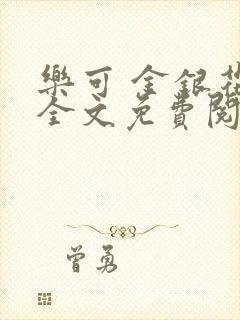 樂可 金銀花
全文免費閱
曾勇